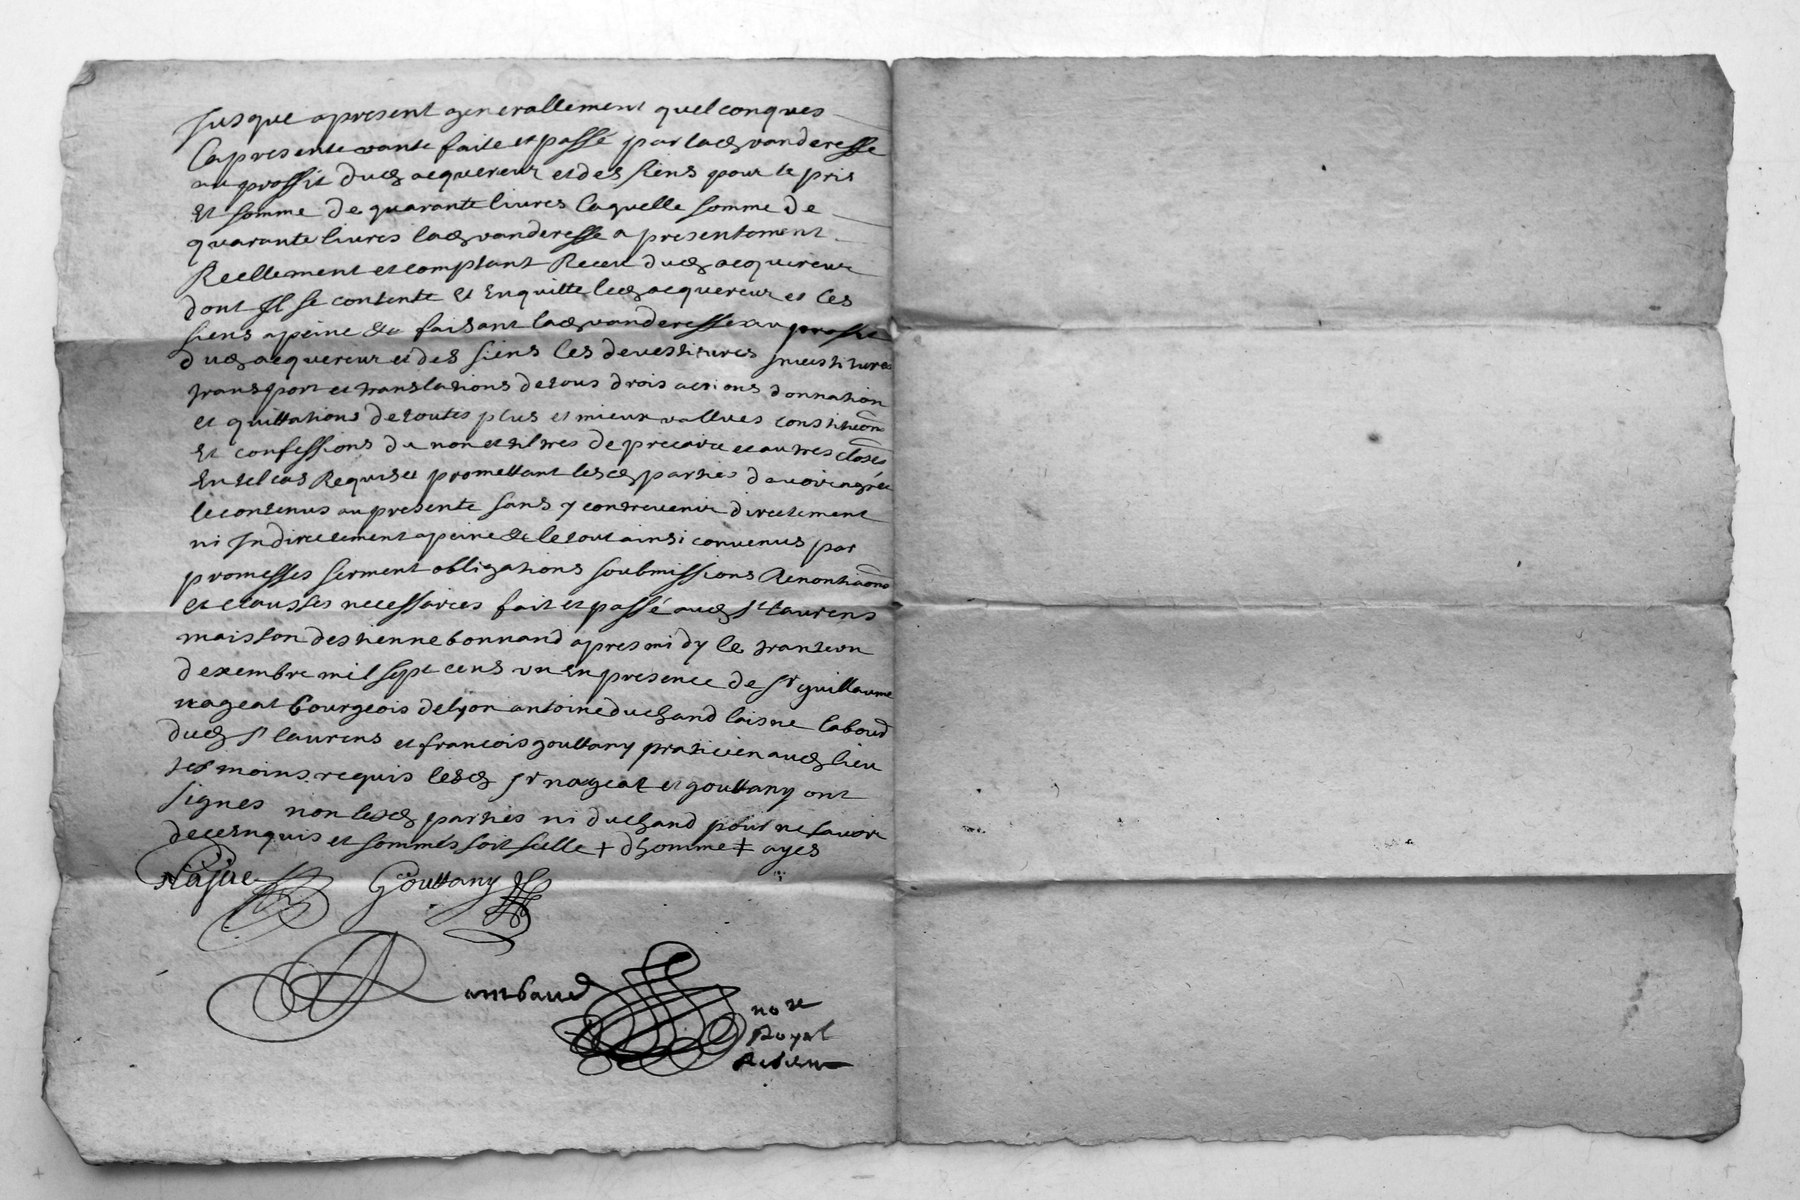 Jusque apresent generallement quelconques
La presente vante faite et passé par lad vanderesse
au proffit dud acquereur et des siens pour le pris
Et somme de quarante livres laquelle somme de
quarante livres lad vanderesse a presentement
Reellement et comptant Receu dud acquereur
dont Il se contente Et Enquitte led acquereur et les
siens apeine &c faisant lad vanderesse au proffit
dud acquereur et des siens les devestitures Investitures
transport et translations de tous drois actions donnation
et quittations de toutes plus et mieux vallues constitu͠ons
Et confessions du non et tiltres de precaire et autres
En tel cas Requises promettant lesd parties davoir agrée
le contenus au presente sans y contrevenir directement
ni Indirectement apeine &c le tout ainsi convenus par
promesses serment obligations soubmissions Renontia͠ons
et clausses necessaires fait et passé aud St laurens
maison destienne bonnand apres midy le
dexembre mil sept cens un En presence de Sr guillaume
nageat bourgeois de lyon antoine duchand laisne laboud
dud St laurens et francois gouttany praticien aud lieu
tesmoins requis lesd Sr nageat et gouttany ont
signes non lesd parties ni duchand pour ne savoir
de ce Enquis et sommés soit selle + dhomme ‡ ayes
Gouttany
Rambaud
nore
Royal